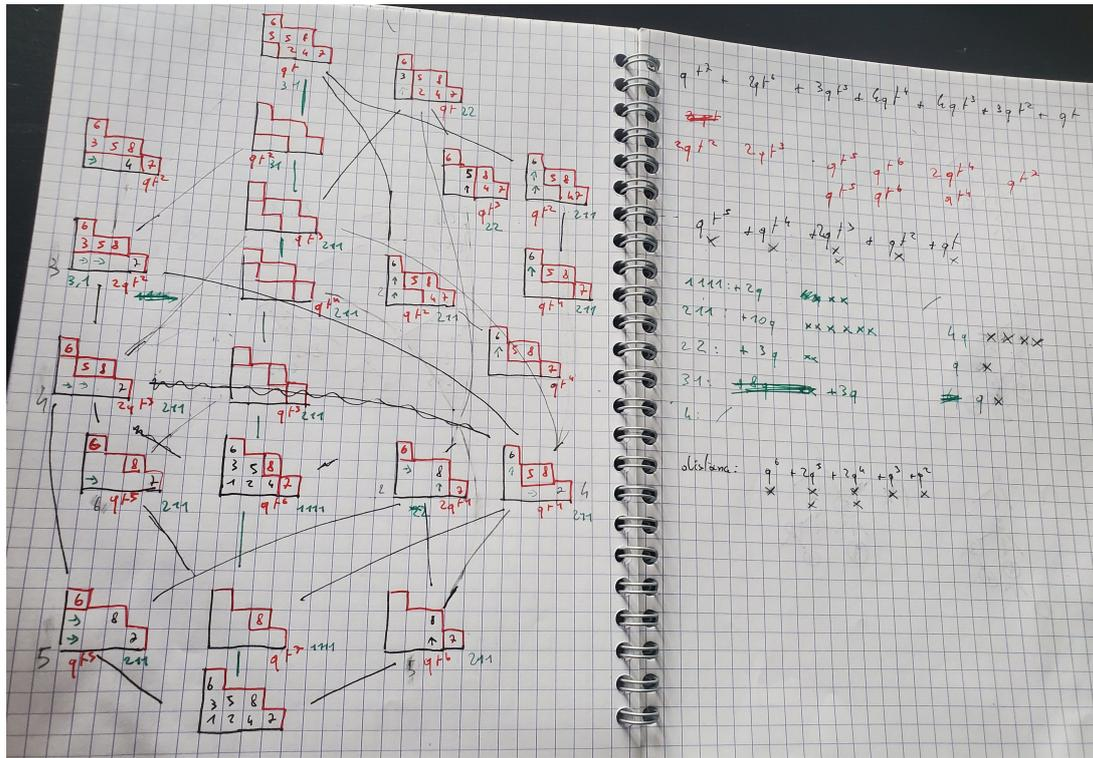 6
3 5 8
2 4 7
qt
31
6
3 5 8
↑ 2 4 7
qt 22
6
3 5 8
→ 4 7
qt²
qt² 31
6
5 8
↑ 4 7
qt³
22
6
↑ 5 8
↑ 4 7
qt² 211
qt³ 211
6
3 5 8
→ → 7
3
3,1 2qt²
qt⁴
211
6
↑ 5 8
↑ 4 7
qt² 211
6
↑ 5 8
7
qt⁴ 211
6
↑ 5 8
7
qt⁴
6
5 8
→ → 7
4
2qt³ 211
qt⁵ 211
6
8
→ 7
6 qt⁵ 211
6
3 5 8
1 2 4 7
qt⁶ 1111
6
→ 8
↑ 7
2 2qt⁴
22
6
↑ 5 8
→ 7
4
qt⁴
211
6
→ 8
→ 7
5 qt⁵ 211
8
qt⁷ 1111
8
↑ 7
5 qt⁶ 211
6
3 5 8
1 2 4 7
qt⁷ + 2qt⁶ + 3qt⁵ + 4qt⁴ + 4qt³ + 3qt² + qt
2qt² 2qt³ qt⁵ qt⁶ 2qt⁴ qt⁷
qt⁵ qt⁶ qt⁴
qt⁵ + qt⁴ + 2qt³ + qt² + qt
x x x x x
x
1111: +2q xx /
211: +10q xxxxxx 4q xxxx
22: +3q xx q x
31: +3q q x
4: /
distance: q⁶ + 2q⁵ + 2q⁴ + q³ + q²
x x x x x
x x